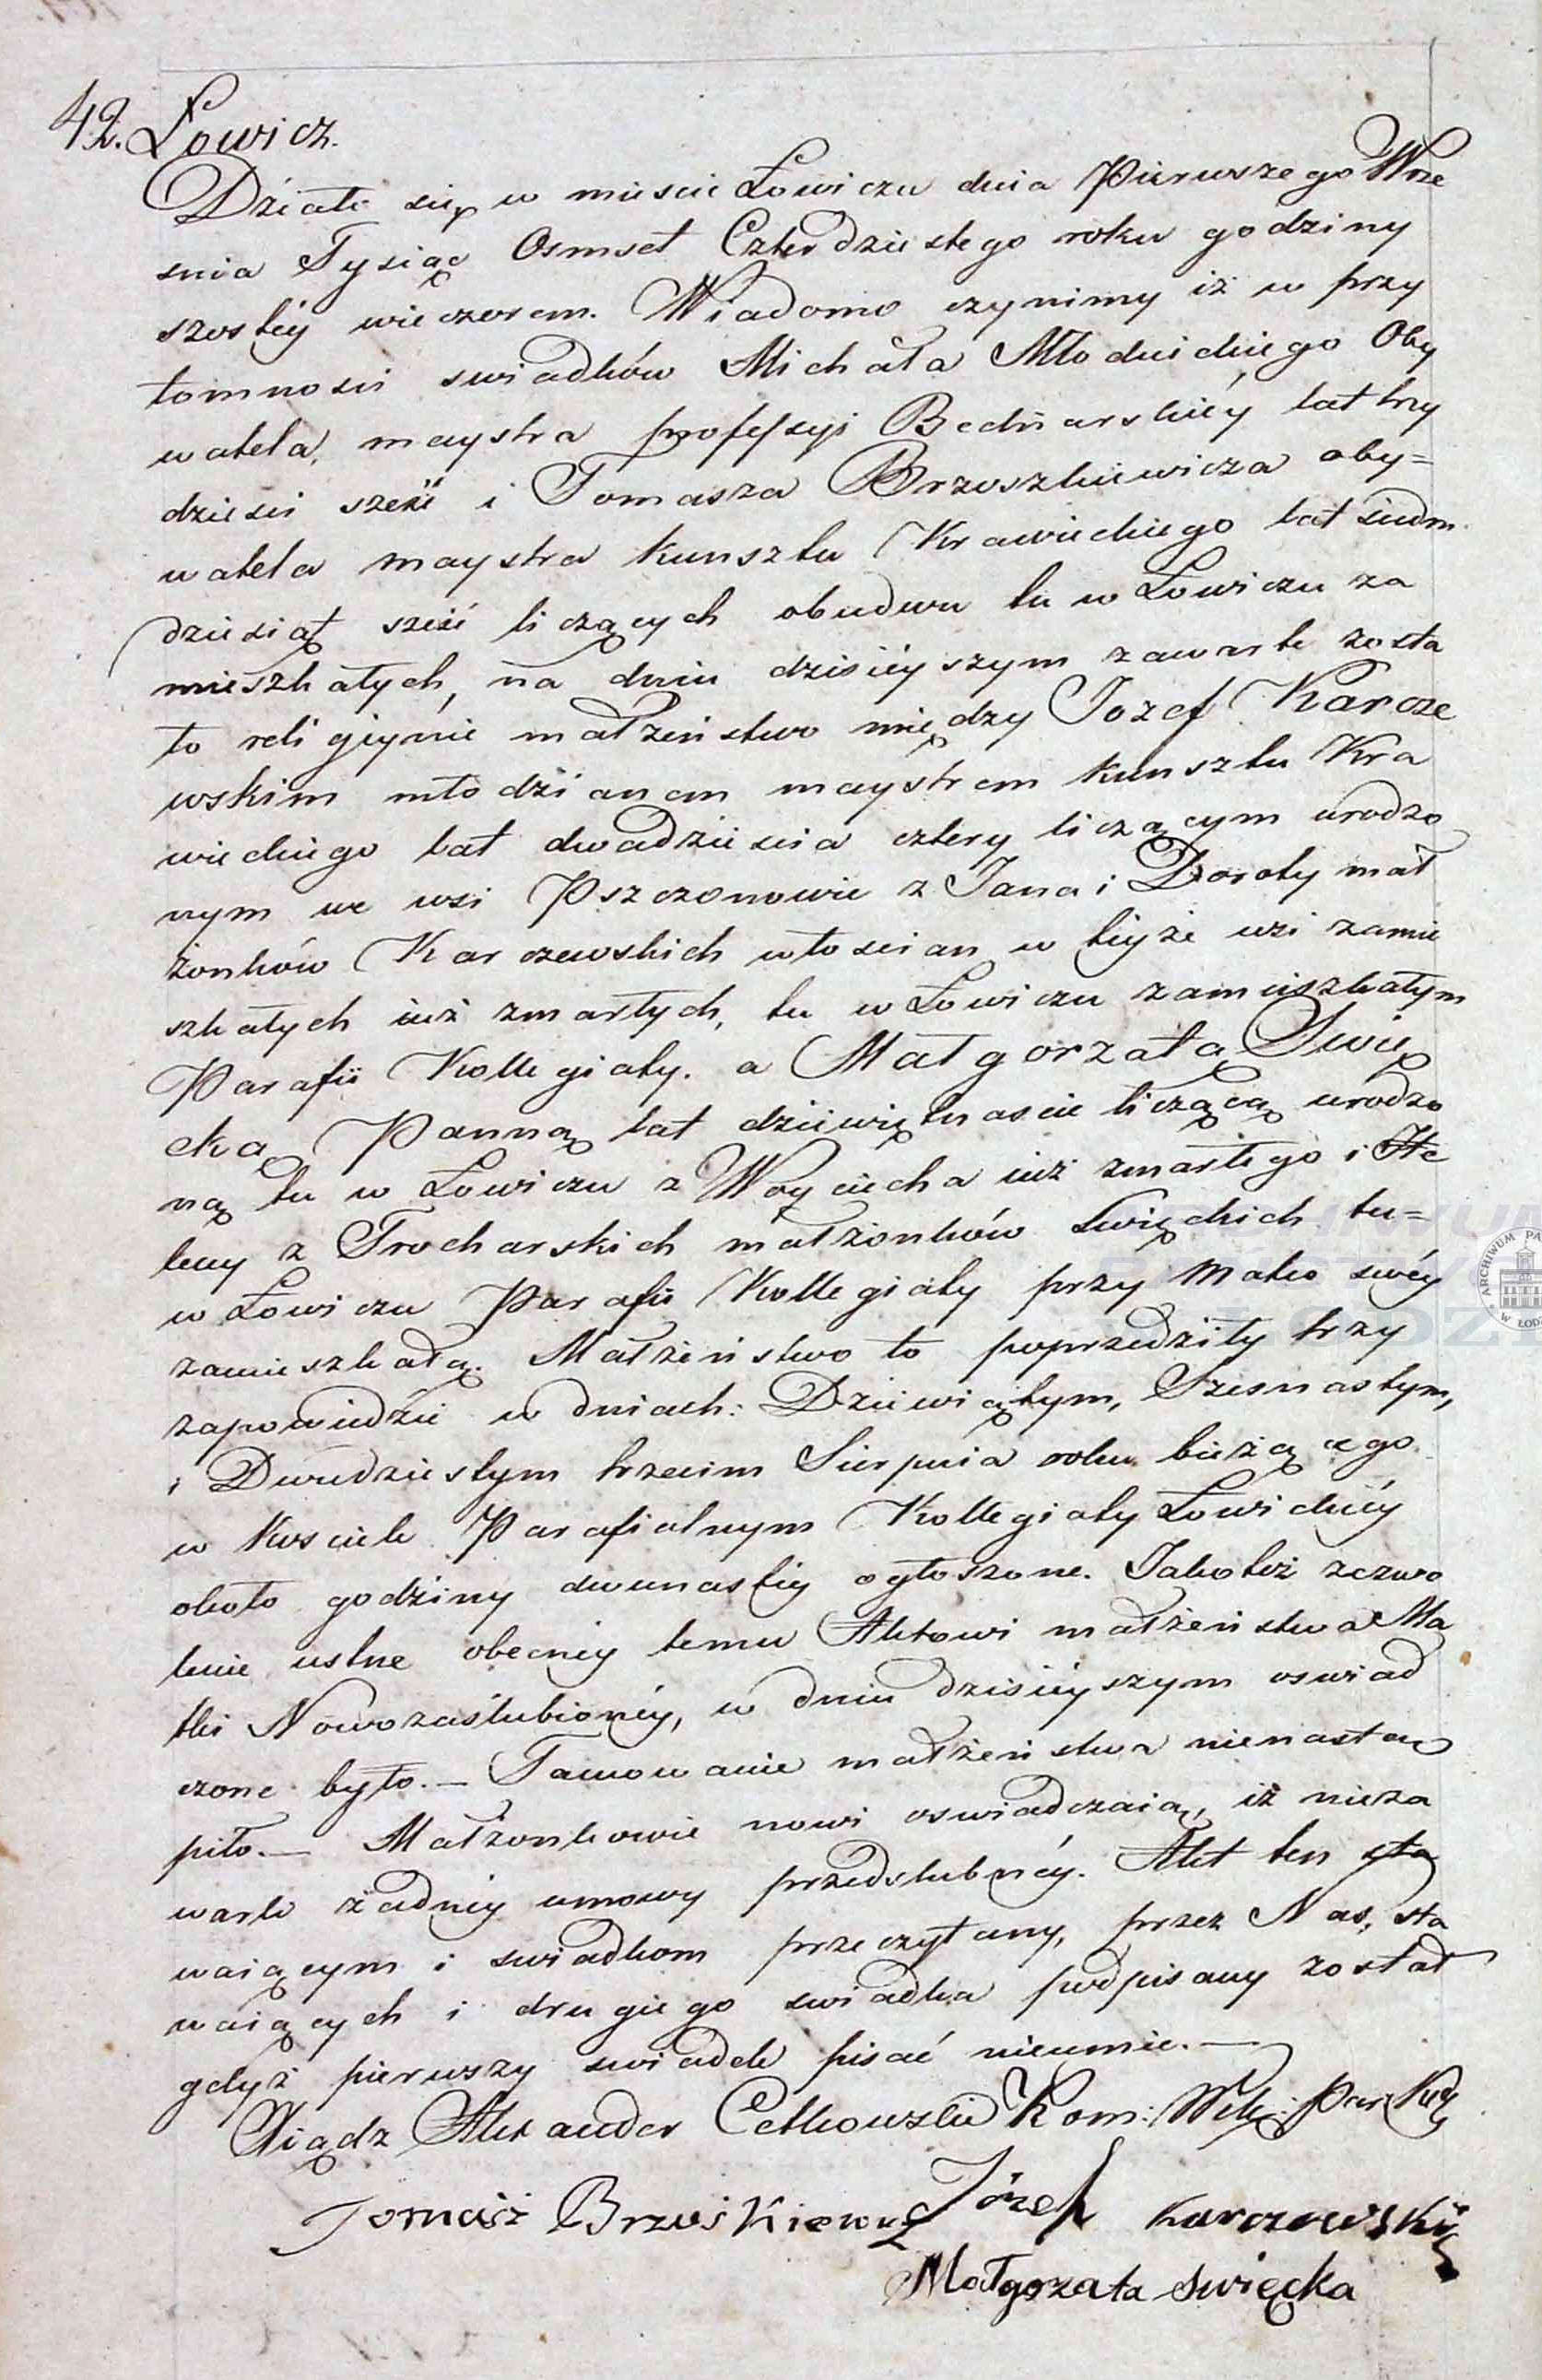 42. Łowicz.
Działo się w mieście Łowiczu dnia Pierwszego Wrze
snia Tysiąc Osmset Czterdziestego roku godziny
szostéy wieczorem. Wiadomo czynimy iż w przy
tomnosci swiadków Michała Młodnickiego Oby
watela, maystra professyi Bednarskiéy lat trzy
dziesci sześć i Tomasza Brzoszkiewicza oby=
watela maystra kunsztu Krawieckiego lat siedm
dziesiąt sześć liczących obudwu tu w Łowiczu za
mieszkałych, na dniu dzisiéyszym zawarte zosta
ło religiynie małżeństwo między Jozef Karcze
wskim młodzianem maystrem kunsztu Kra
wieckiego lat dwadziescia cztery liczącym urodzo
nym we wsi Pszczonowie z Jana i Doroty mał
żonków Karczewskich włoscian w teyże wsi zamie
szkałych iuż zmarłych, tu w Łowiczu zamieszkałym
Parafii Kollegiaty. a Małgorzatą Swię
cką Panną lat dziewiętnascie liczącą urodzo
ną tu w Łowiczu z Woyciecha iuż zmarłego i He
leny z Trocharskich małżonków Swięckich tu=
w Łowiczu Parafii Kollegiaty przy Matce swéy
zamieszkałą. Małżeństwo to poprzedziły trzy
zapowiedzie w dniach: Dziewiątym, Szesnastym,
i Dwudziestym trzecim Sierpnia roku bieżącego
w Kosciele Parafialnym Kollegiaty Łowickiéy
około godziny dwunastey ogłoszone. Jakoteż zezwo
lenie ustne obecney temu Aktowi małżeństwa Ma
tki Nowozaślubionéy, w dniu dzisiéyszym oswiad
czone było.— Tamowanie małżeństwa nienastą
piło.— Małżonkowie nowi oswiadczaią, iż nieza
warli żadney umowy przedslubnéy. Akt ten sta
waiącym i swiadkom przeczytany, przez Nas, sta
waiących i drugiego swiadka podpisany został
gdyż pierwszy swiadek pisać nieumie.—
Xiądz Alexander Cetkowski Kom: Wik: Par: Koll
Tomasz Brzoskiewicz Józef Karczewski
Małgorzata Swięcka
ARCHIWUM
W ŁODZI